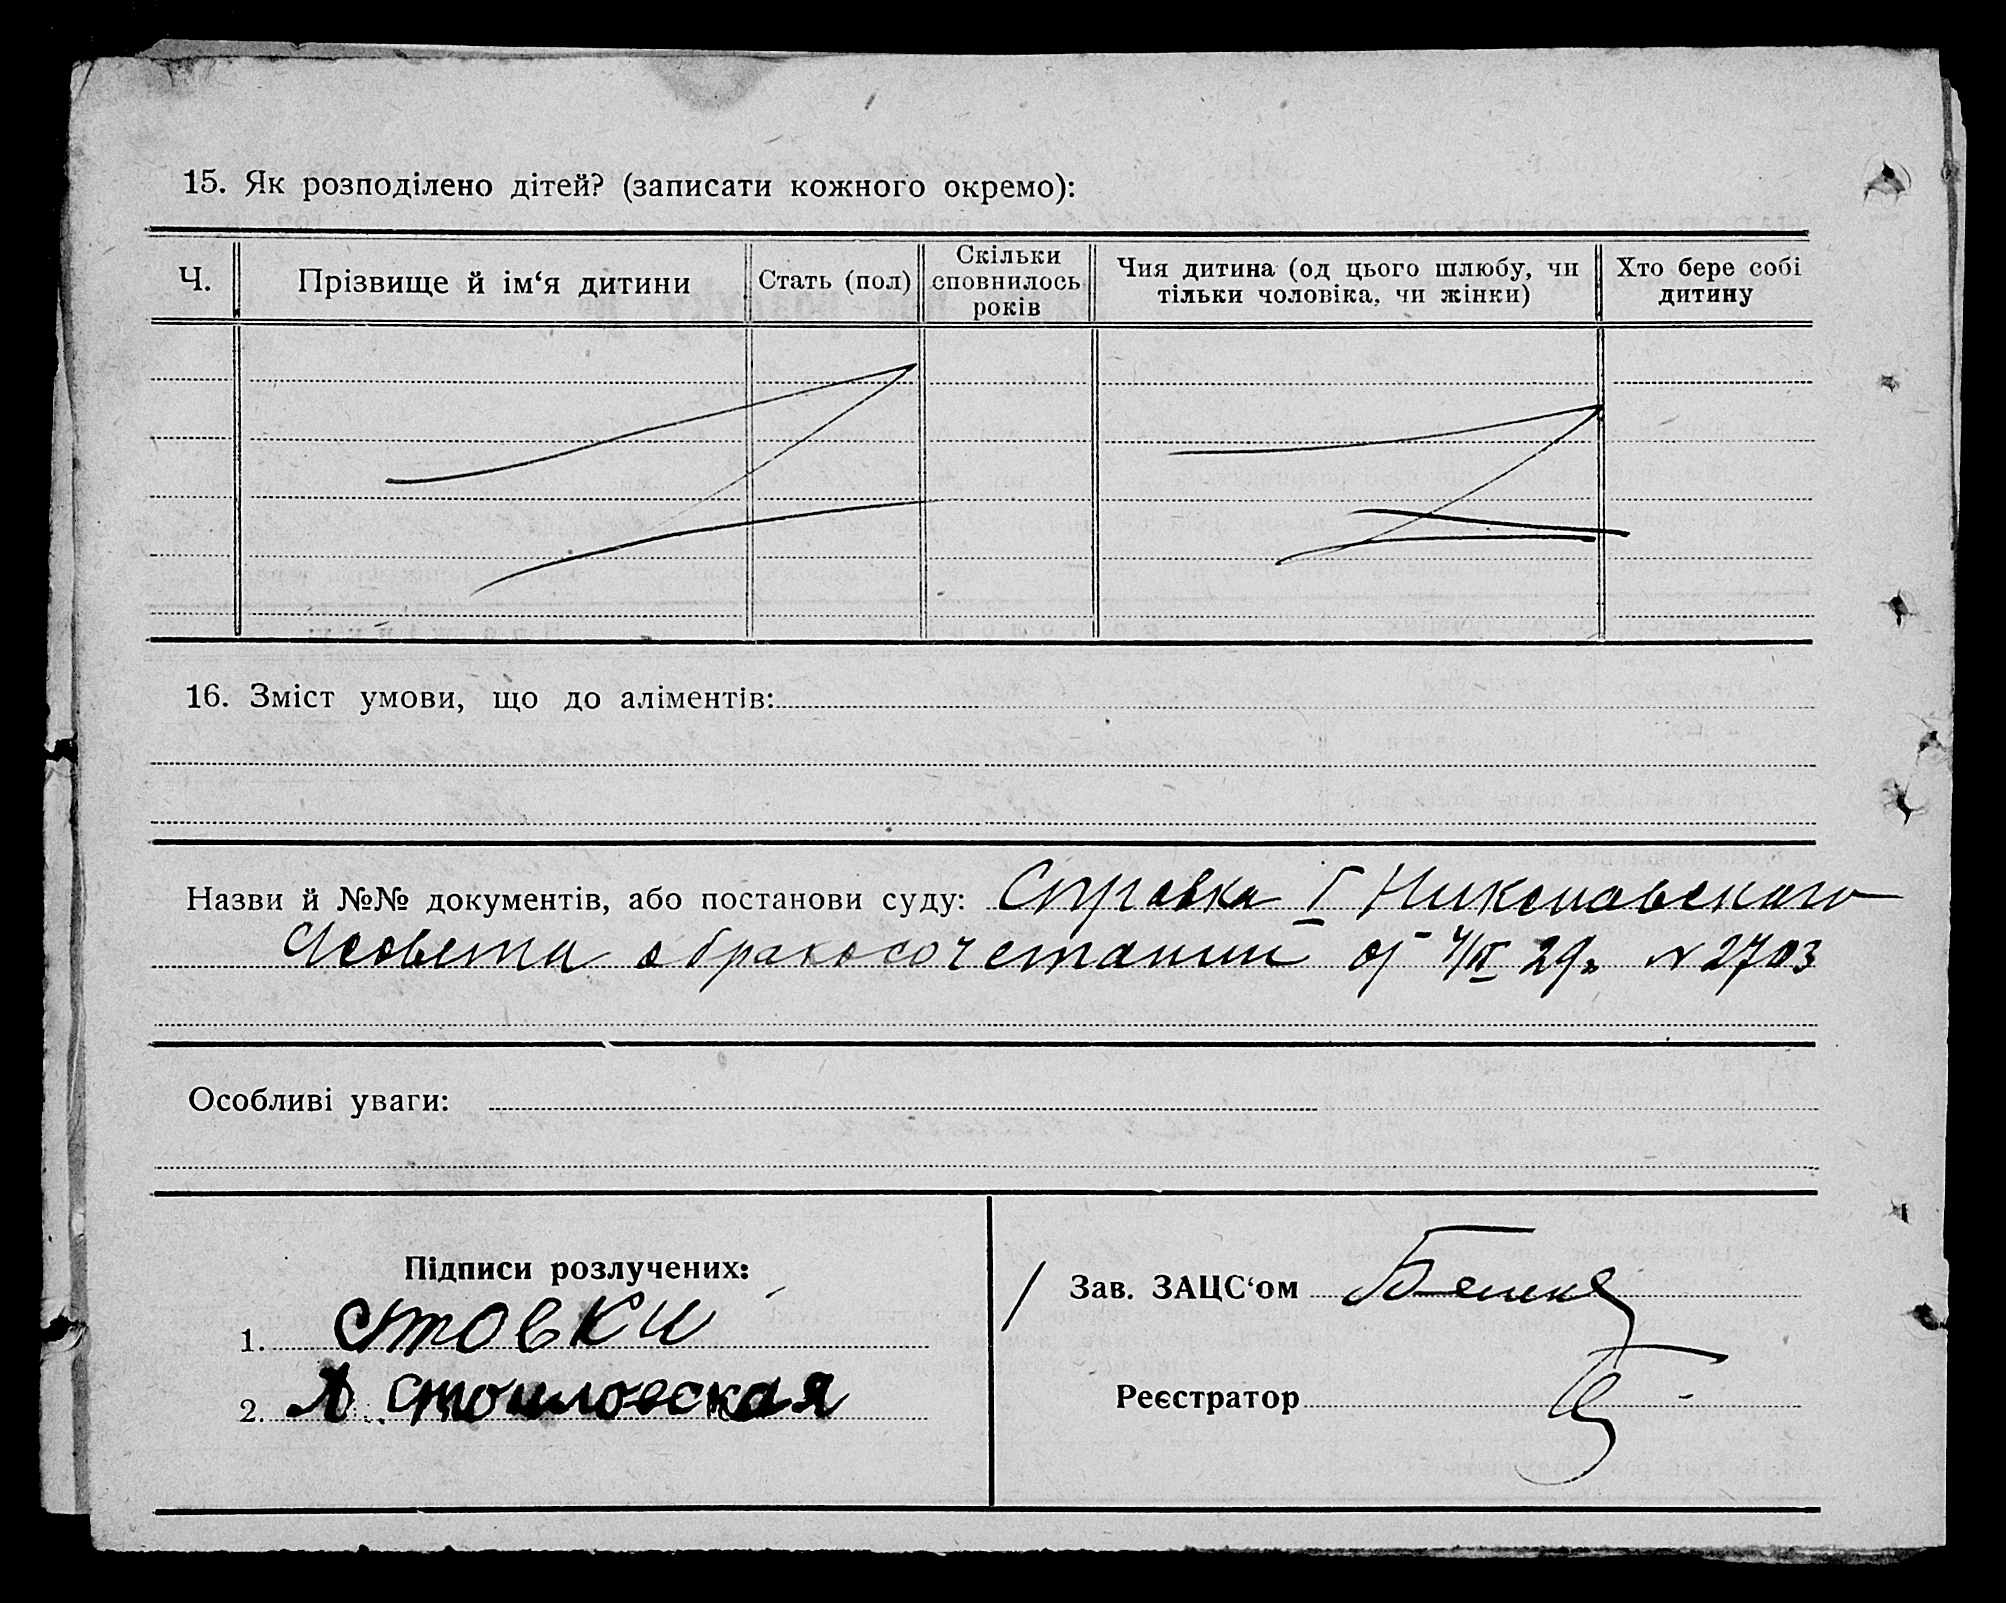 15. Як розподілено дітей? (записати кожного окремо):
Ч.
Прізвище й ім‘я дитини
Стать (пол)
Скільки
сповнилось
років
Чия дитина (од цього шлюбу, чи
тільки чоловіка, чи жінки)
Хто бере собі
дитину
16. Зміст умови, що до аліментів:
Назви й №№ документів, або постанови суду: Справка I Николаевского
о бракосочетании от 4/II 29 г. № 2703
Особливі уваги:
Підписи розлучених:
1.
2. А
Зав. ЗАЦС‘ом
Реєстратор